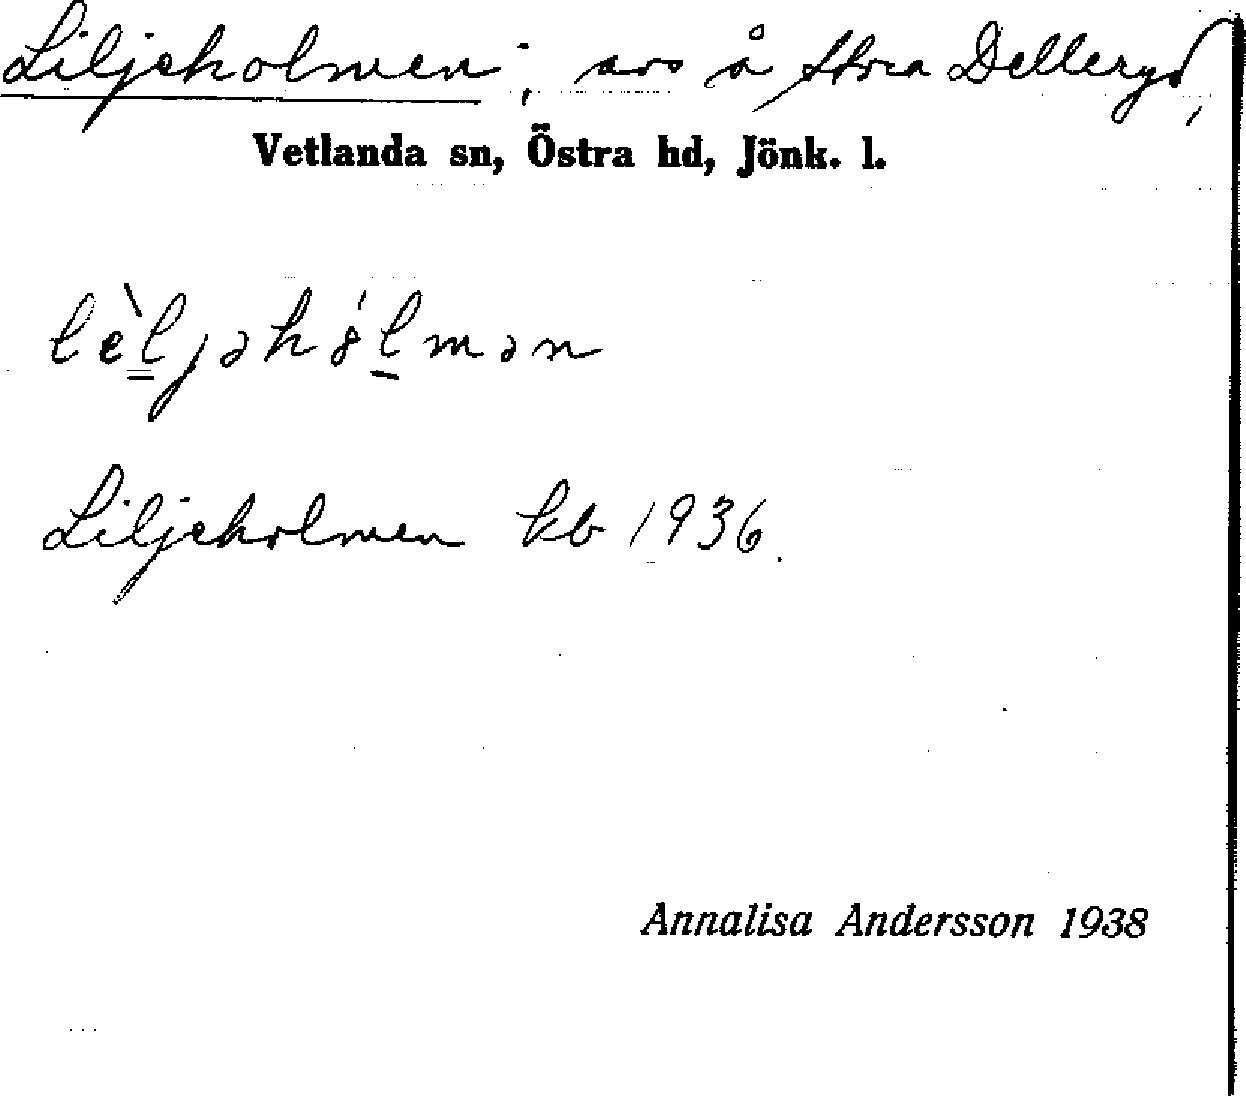 Liljeholmen, avs å Stora Delleryd,
Vetlanda sn, Östra hd, Jönk. l.
lèljəhólmən
Liljeholmen kb 1936.
Annalisa Andersson 1938